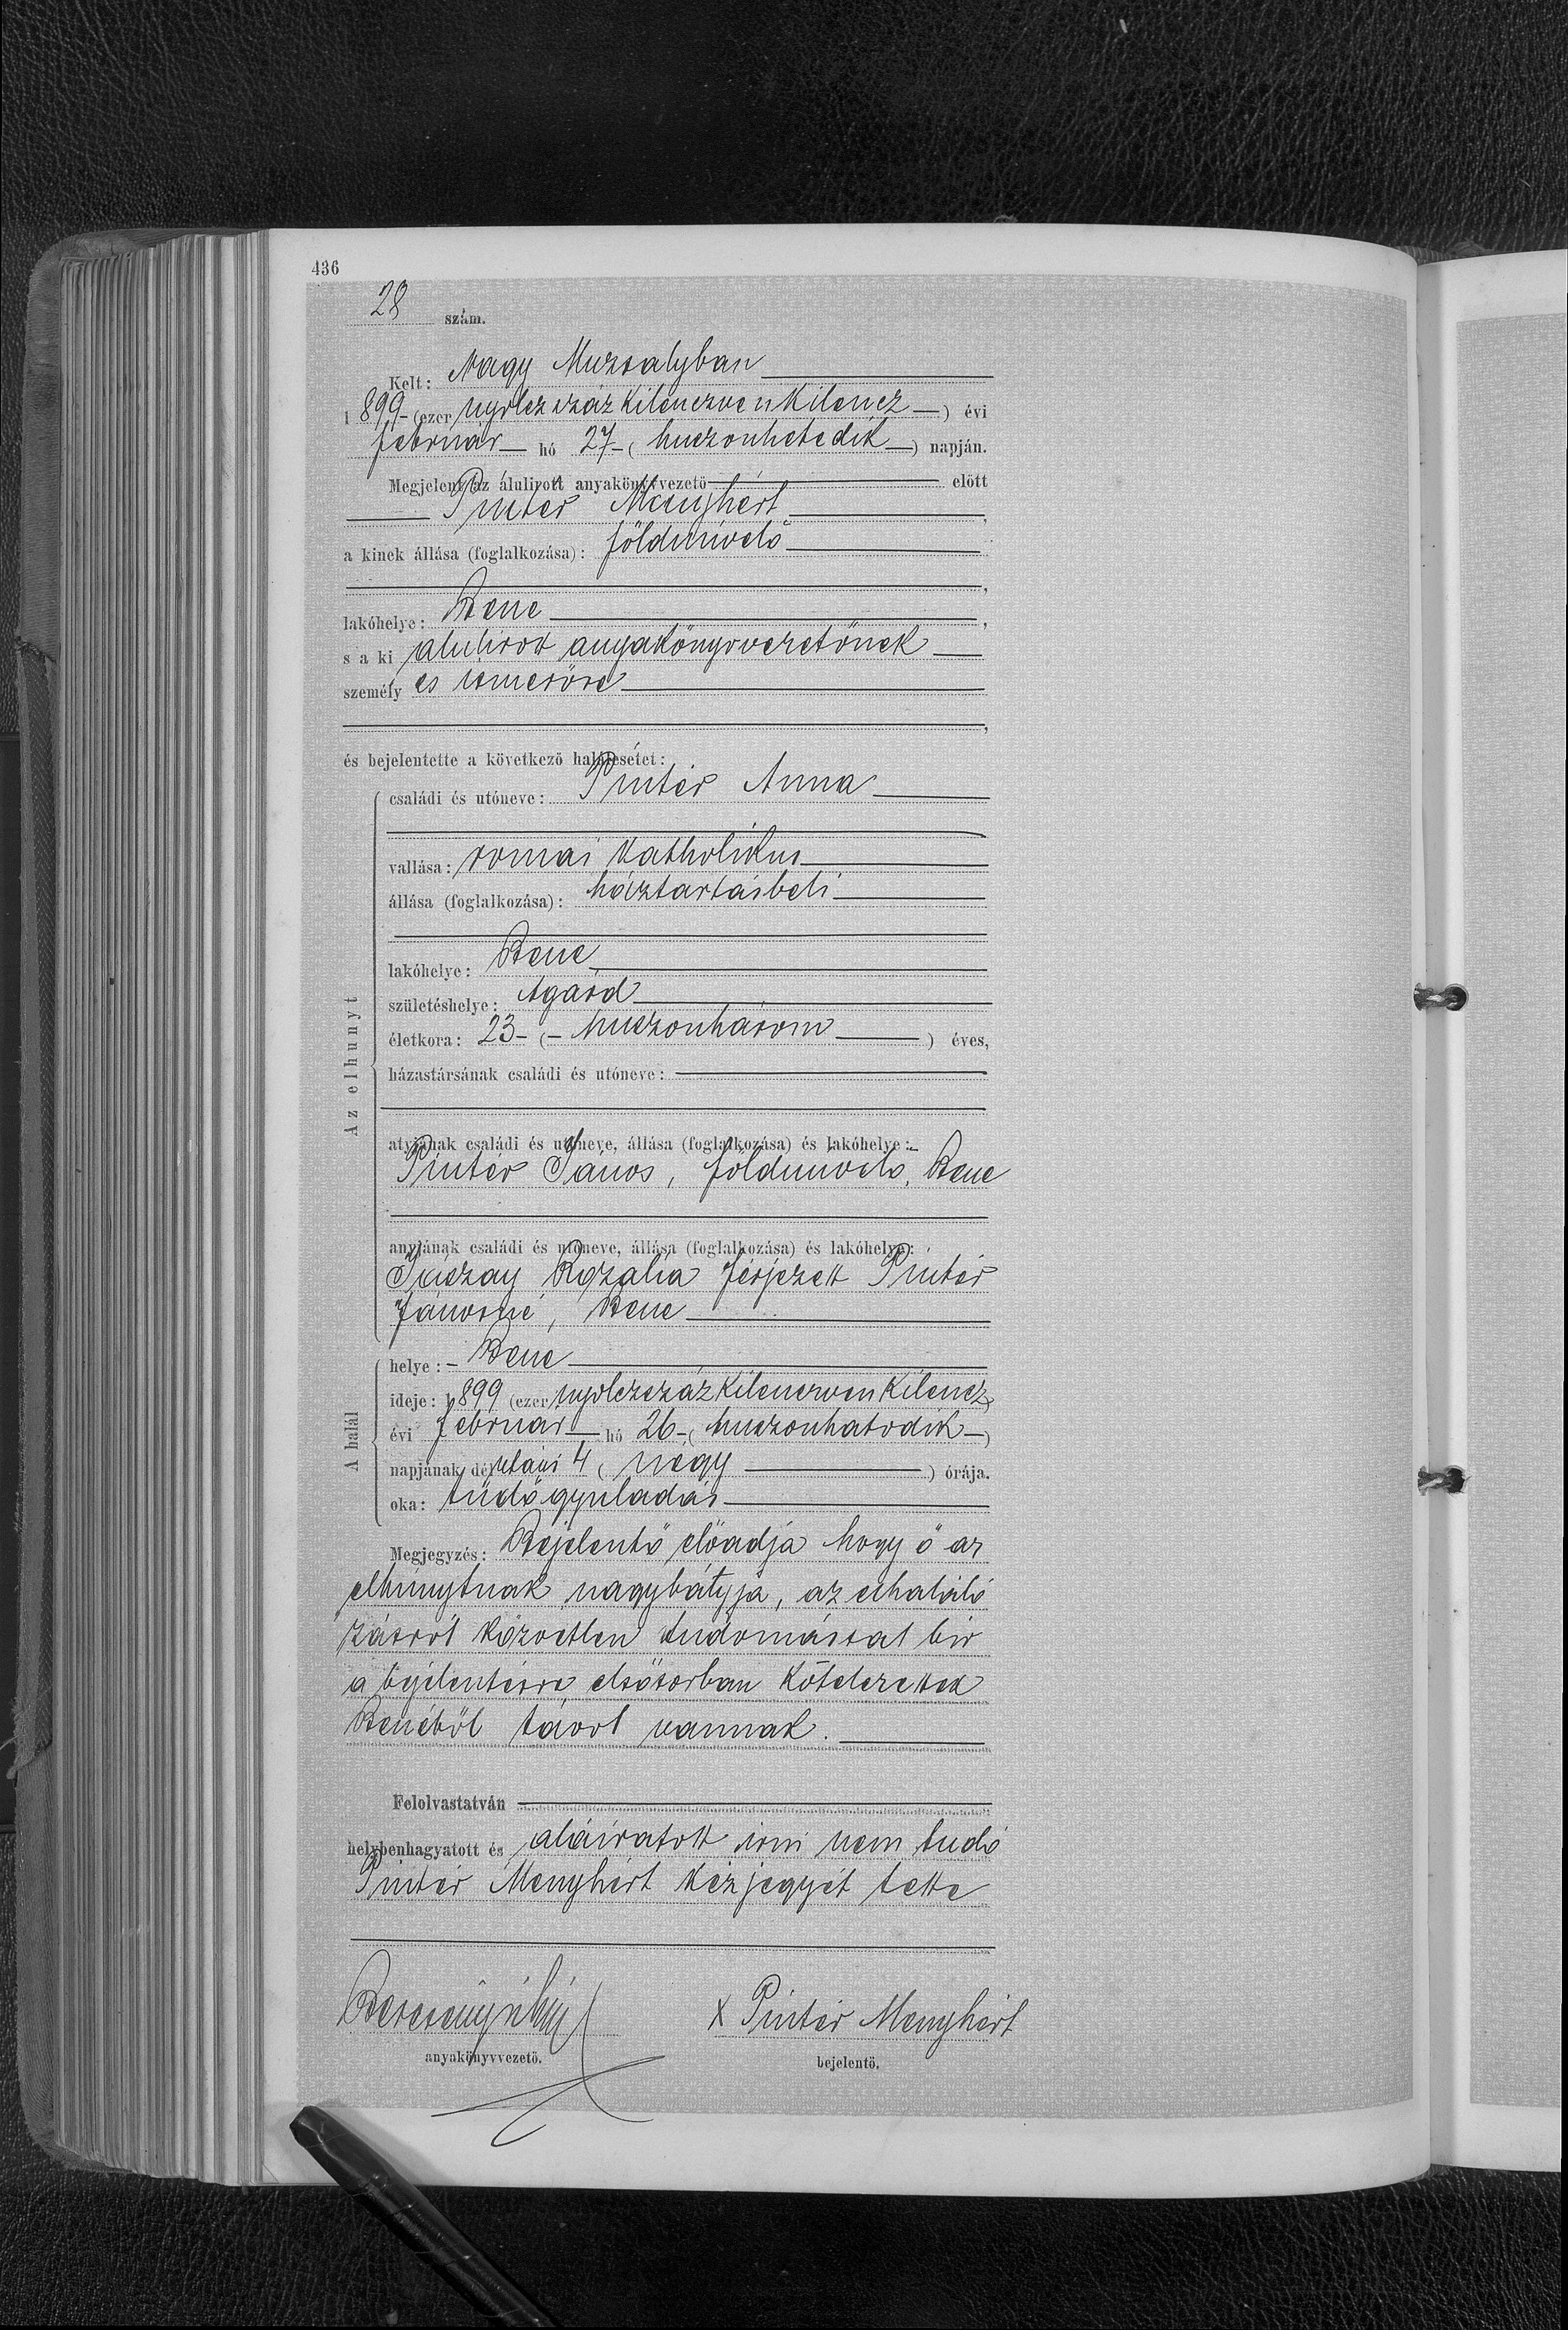 436
28 szám.
Kelt: Nagy Muzsalyban
1899 - (ezer nyolczszáz kilenczven kilencz) évi
február hó 27 - (huszonhetedik) napján.
Megjelent az alulirott anyakönyvvezető előtt
Pintér Menyhért,
a kinek állása (foglalkozása): földmívelő
,
lakóhelye: Bene,
s a ki alulirott anyakönyvvezetőnek
személyes ismerőse
,
és bejelentette a következő halálesetet:
családi és utóneve: Pintér Anna
vallása: római katholikus
állása (foglalkozása): háztartásbeli
lakóhelye: Bene
születéshelye: Agárd
életkora: 23 - (- huszonhárom) éves,
házastársának családi és utóneve:
Az elhunyt
atyjának családi és utóneve, állása (foglalkozása) és lakóhelye:
Pintér János, földmívelő, Bene
anyjának családi és utóneve, állása (foglalkozása) és lakóhelye:
Rozália férjezett Pintér
Jánosné, Bene
helye: - Bene
ideje: 1899 (ezer nyolczszáz kilenczven kilencz)
évi február hó 26 - (huszonhatodik)
A halál
napjának délutáni 4 (négy) órája.
oka: tüdőgyuladás
Megjegyzés: Bejelentő előadja hogy ő az
elhúnytnak nagybátyja, az elhaláló
zásról közvetlen tudomással bír
a bejelentésre elsősorban kötelezettek
Benéből távol vannak.
Felolvastatván
helybenhagyatott és aláiratott irni nem tudó
Pintér Menyhért kézjegyét tette
x Pintér Menyhért
anyakönyvvezető. bejelentő.